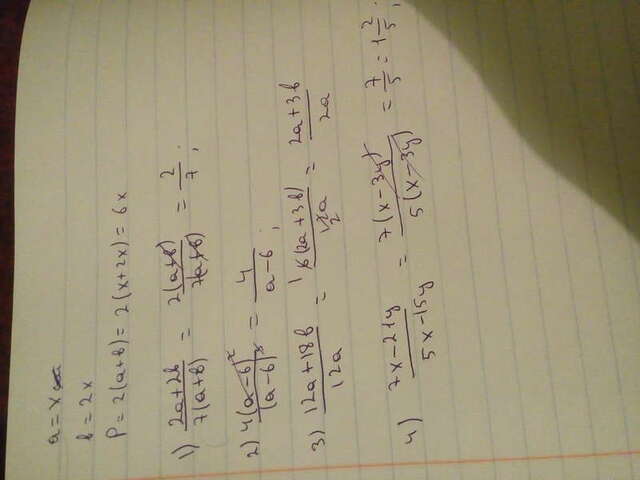 a = x
b = 2x
P = 2(a+b) = 2(x+2x) = 6x
1) \frac{2a+2b}{7(a+b)} = \frac{2(a+b)}{7(a+b)} = \frac{2}{7};
2) \frac{4(a-6)^2}{(a-6)^3} = \frac{4}{a-6};
3) \frac{12a+18b}{12a} = \frac{^1 6(2a+3b)}{12a_2} = \frac{2a+3b}{2a}
4) \frac{7x-21y}{5x-15y} = \frac{7(x-3y)}{5(x-3y)} = \frac{7}{5} = 1\frac{2}{5};